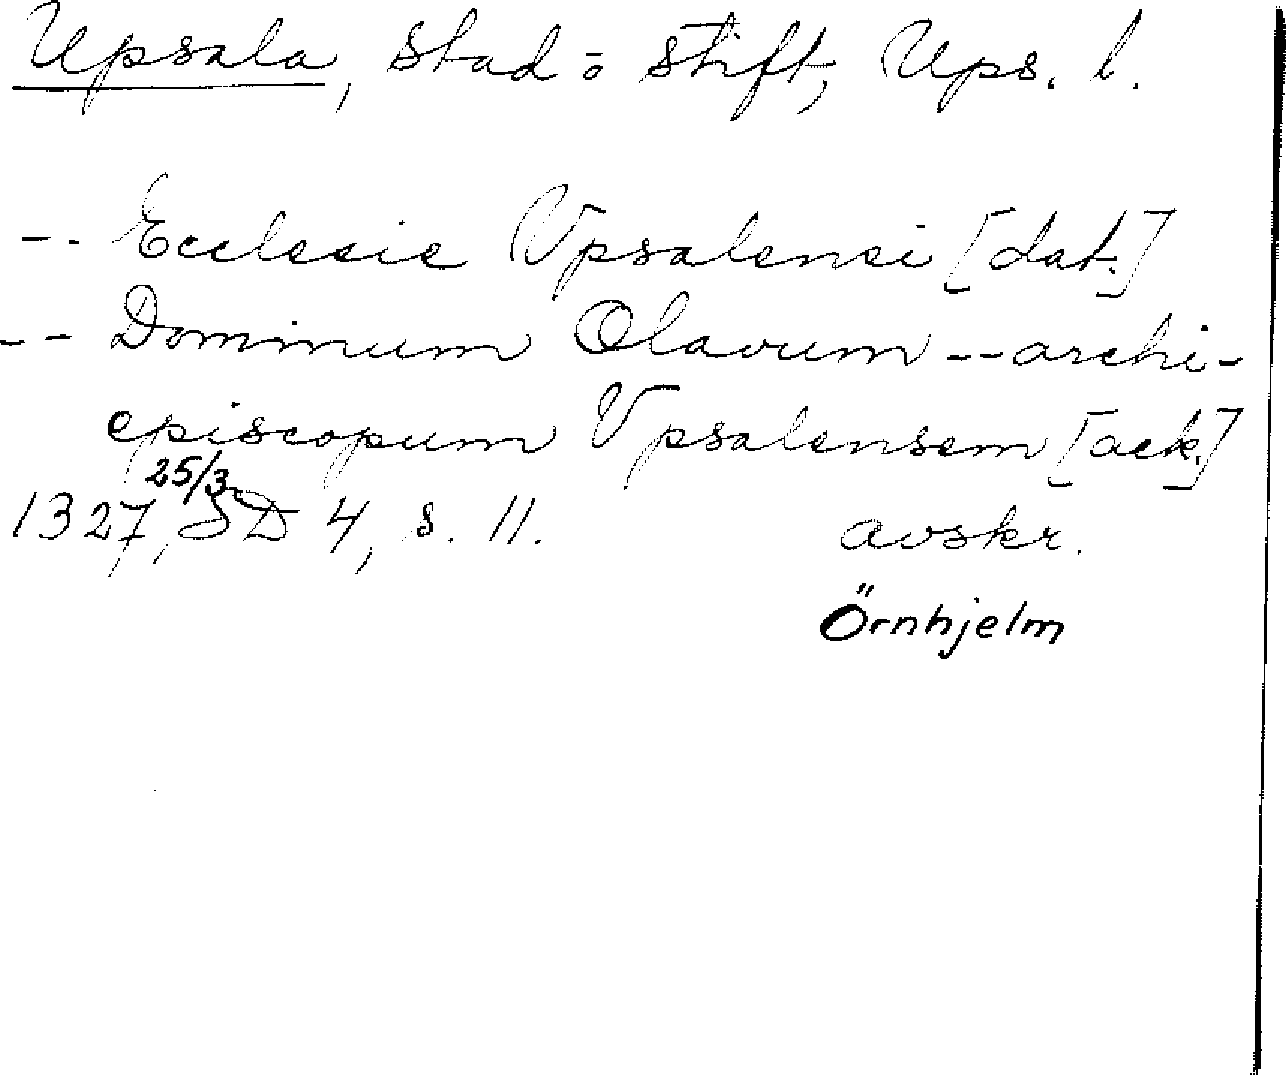 Upsala, stad o stift, Ups. l.
-- Ecclesie Vpsalensi [dat.]
-- Dominum Olavum -- archi-
episcopum Vpsalensem [ack.]
1327, 25/3 SD 4, s. 11. avskr.
Örnhjelm